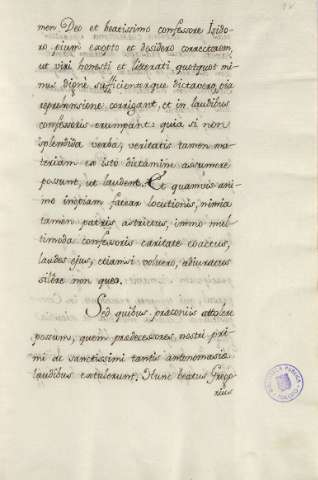 men Deo et beatissimo confessore Isido-
ro pium exopto et desidero correctorem,
ut viri honesti et literati, quotquot mi-
nus dignè sufficienterque dictavero, pia
reprehensione corrigant, et in laudibus
confessoris erumpant: quia si non
splendida verba, veritatis tamen ma-
teriam ex isto dictamine assumere
possunt, ut laudent. Et quamvis ani-
mo inopiam fatear locutionis, nimia
tamen patris astrictus, immo mul-
timoda confessoris caritate coactus,
laudes ejus, etiamsi voluero, adiuratus
silere non queo.
Sed quibus praeconiis attollere
possum, quem predecessores nostri pri-
mi ac sanctissimi tantis antonomasiae
laudibus extulerunt. Hunc beatus Grego-
rius
BIBLIOTECA PUBLICA
TOLEDO